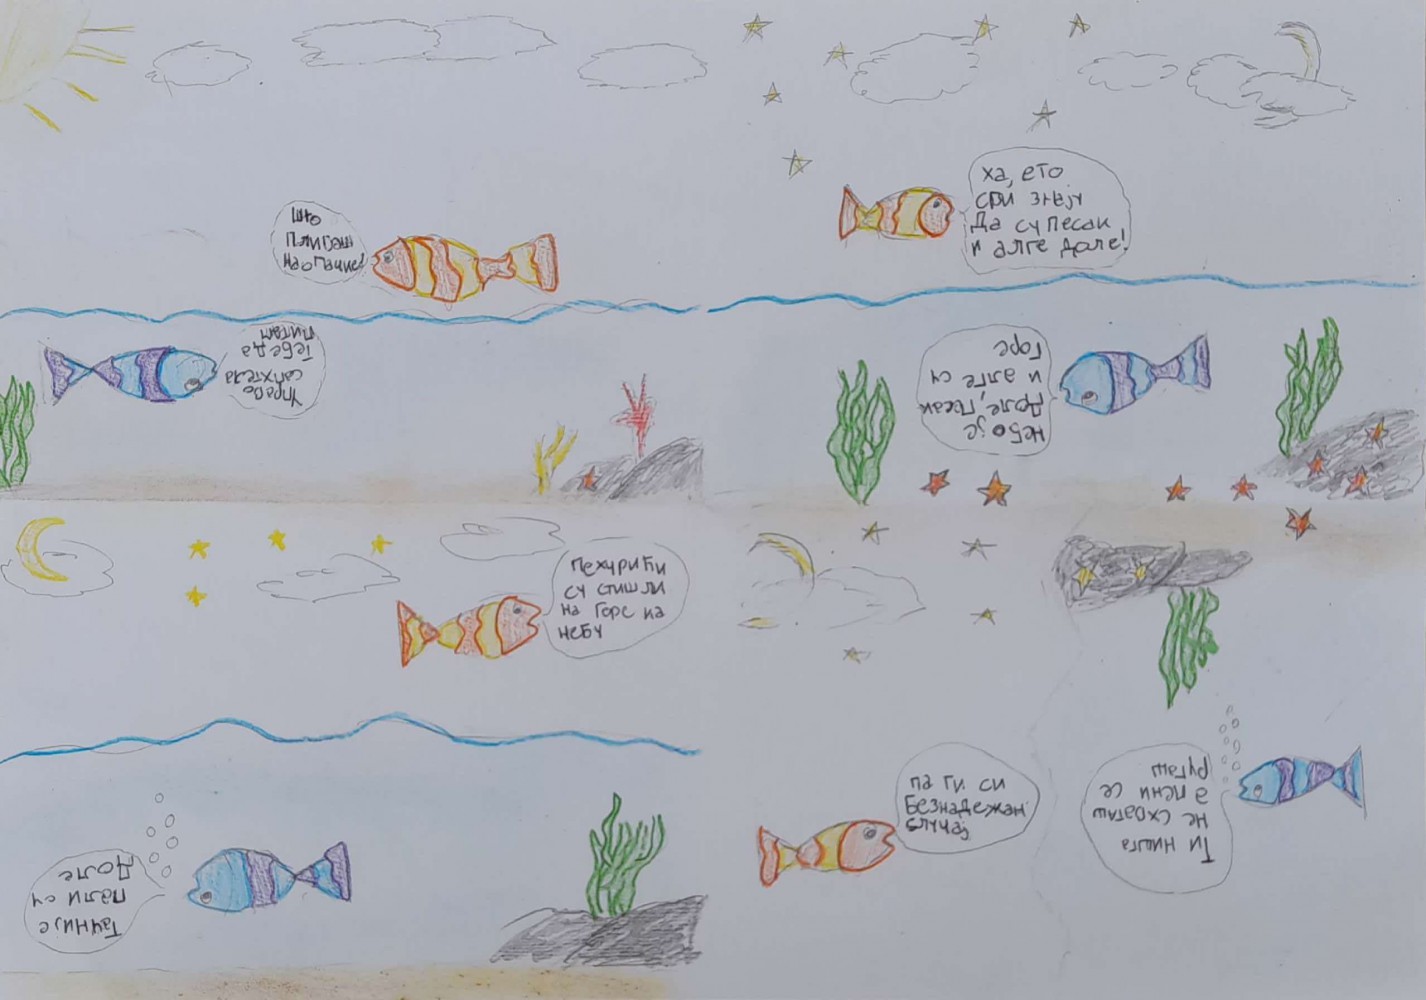 што
пливаш
наопачке?
Управо
сам хтела
тебе да
питам
ха, ето
сви знају
да су песак
и алге доле!
небо је
доле, песак
и алге су
горе
пехурићи
су стишли
на горе на
небу
Тачније
пали су
доле
па ти си
безнадежан
случај
Ти ништа
не схваташ
а мени се
ругаш